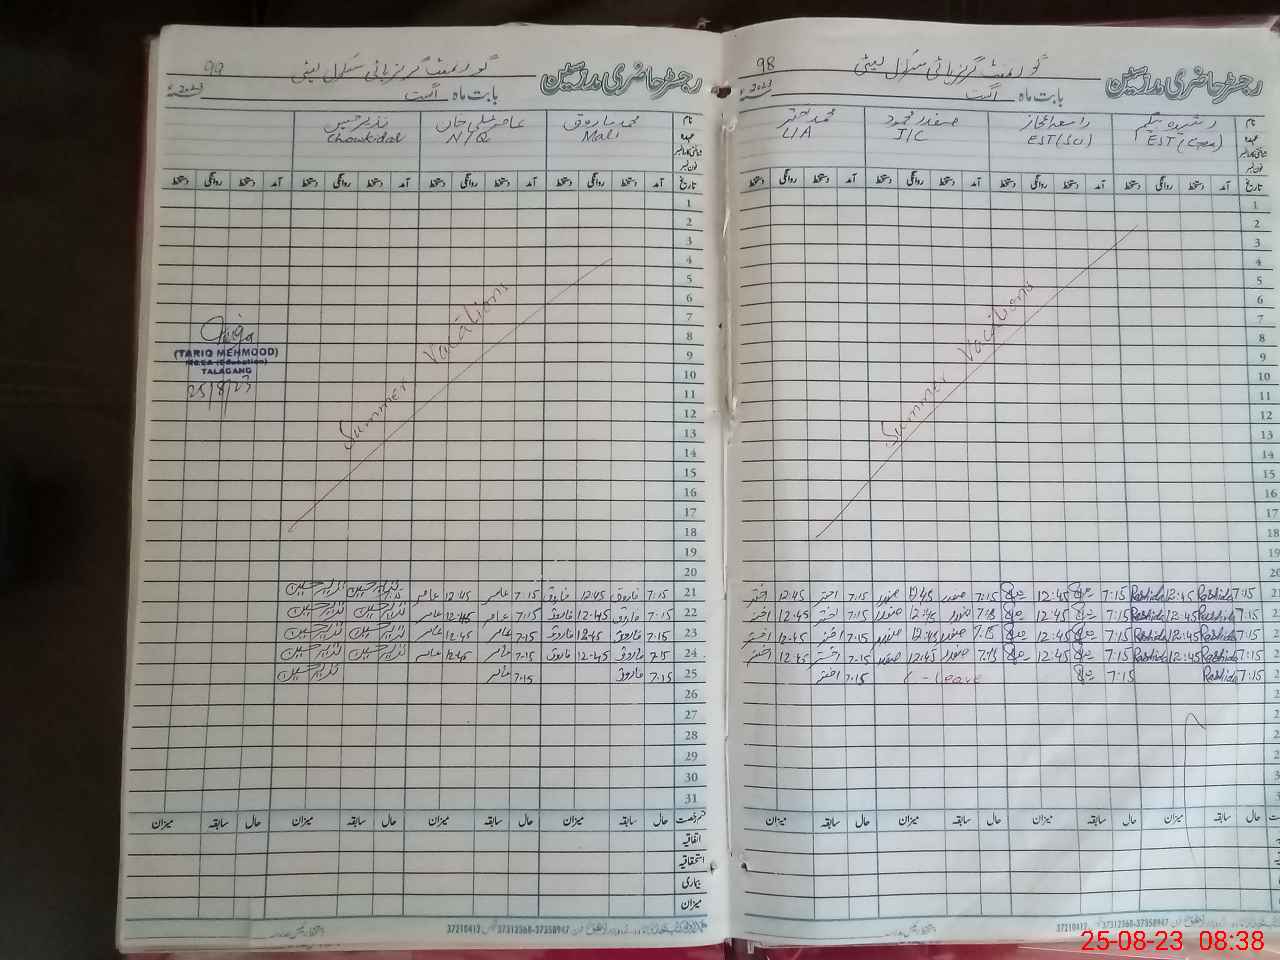 رجسٹر حاضری مدرسین
گورنمنٹ گرلز ہائی سکول لیٹی
98
بابت ماہ اگست 2023ء
نام
عہدہ
رشیدہ بیگم
EST (Com)
EST (Sci)
صفدر محمود
I/C
محمد اختر
L/A
تاریخ آمد دستخط روانگی دستخط آمد دستخط روانگی دستخط آمد دستخط روانگی دستخط آمد دستخط روانگی دستخط
1
2
3
4
5
6
7
8
9
10
11
12
13
14
15
16
17
18
19
20
Summer Vacations
7:15 Rashida 12:45 Rashida 7:15 12:45 7:15 صفدر 12:45 صفدر 7:15 اختر 12:45 اختر
7:15 Rashida 12:45 Rashida 7:15 12:45 7:15 صفدر 12:45 صفدر 7:15 اختر 12:45 اختر
7:15 Rashida 12:45 Rashida 7:15 12:45 7:15 صفدر 12:45 صفدر 7:15 اختر 12:45 اختر
7:15 Rashida 12:45 Rashida 7:15 12:45 7:15 صفدر 12:45 صفدر 7:15 اختر 12:45 اختر
7:15 Rashida 7:15 C-Leave 7:15 اختر
حال سابقہ میزان حال سابقہ میزان حال سابقہ میزان حال سابقہ میزان
37210412 37312360-37358947
رجسٹر حاضری مدرسین
گورنمنٹ گرلز ہائی سکول لیٹی
99
بابت ماہ اگست 2023ء
نام
عہدہ
محمد فاروق
Mali
عامر علی خان
N/Q
نذیر حسین
Chowkidar
تاریخ آمد دستخط روانگی دستخط آمد دستخط روانگی دستخط آمد دستخط روانگی دستخط آمد دستخط روانگی دستخط
1
2
3
4
5
6
7
8
9
10
11
12
13
14
15
16
17
18
19
20
Summer Vacations
(TARIQ MEHMOOD)
TALAGANG
25/8/23
21 7:15 فاروق 12:45 فاروق 7:15 عامر 12:45 عامر 7:15 نذیر حسین نذیر حسین
22 7:15 فاروق 12:45 فاروق 7:15 عامر 12:45 عامر نذیر حسین نذیر حسین
23 7:15 فاروق 12:45 فاروق 7:15 عامر 12:45 عامر نذیر حسین نذیر حسین
24 7:15 فاروق 12:45 فاروق 7:15 عامر 12:45 عامر نذیر حسین نذیر حسین
25 7:15 فاروق 7:15 عامر نذیر حسین
26
27
28
29
30
31
قسم رخصت حال سابقہ میزان حال سابقہ میزان حال سابقہ میزان حال سابقہ میزان
اتفاقیہ
استحقاقیہ
بیماری
میزان
37210412 37312360-37358947
25-08-23 08:38